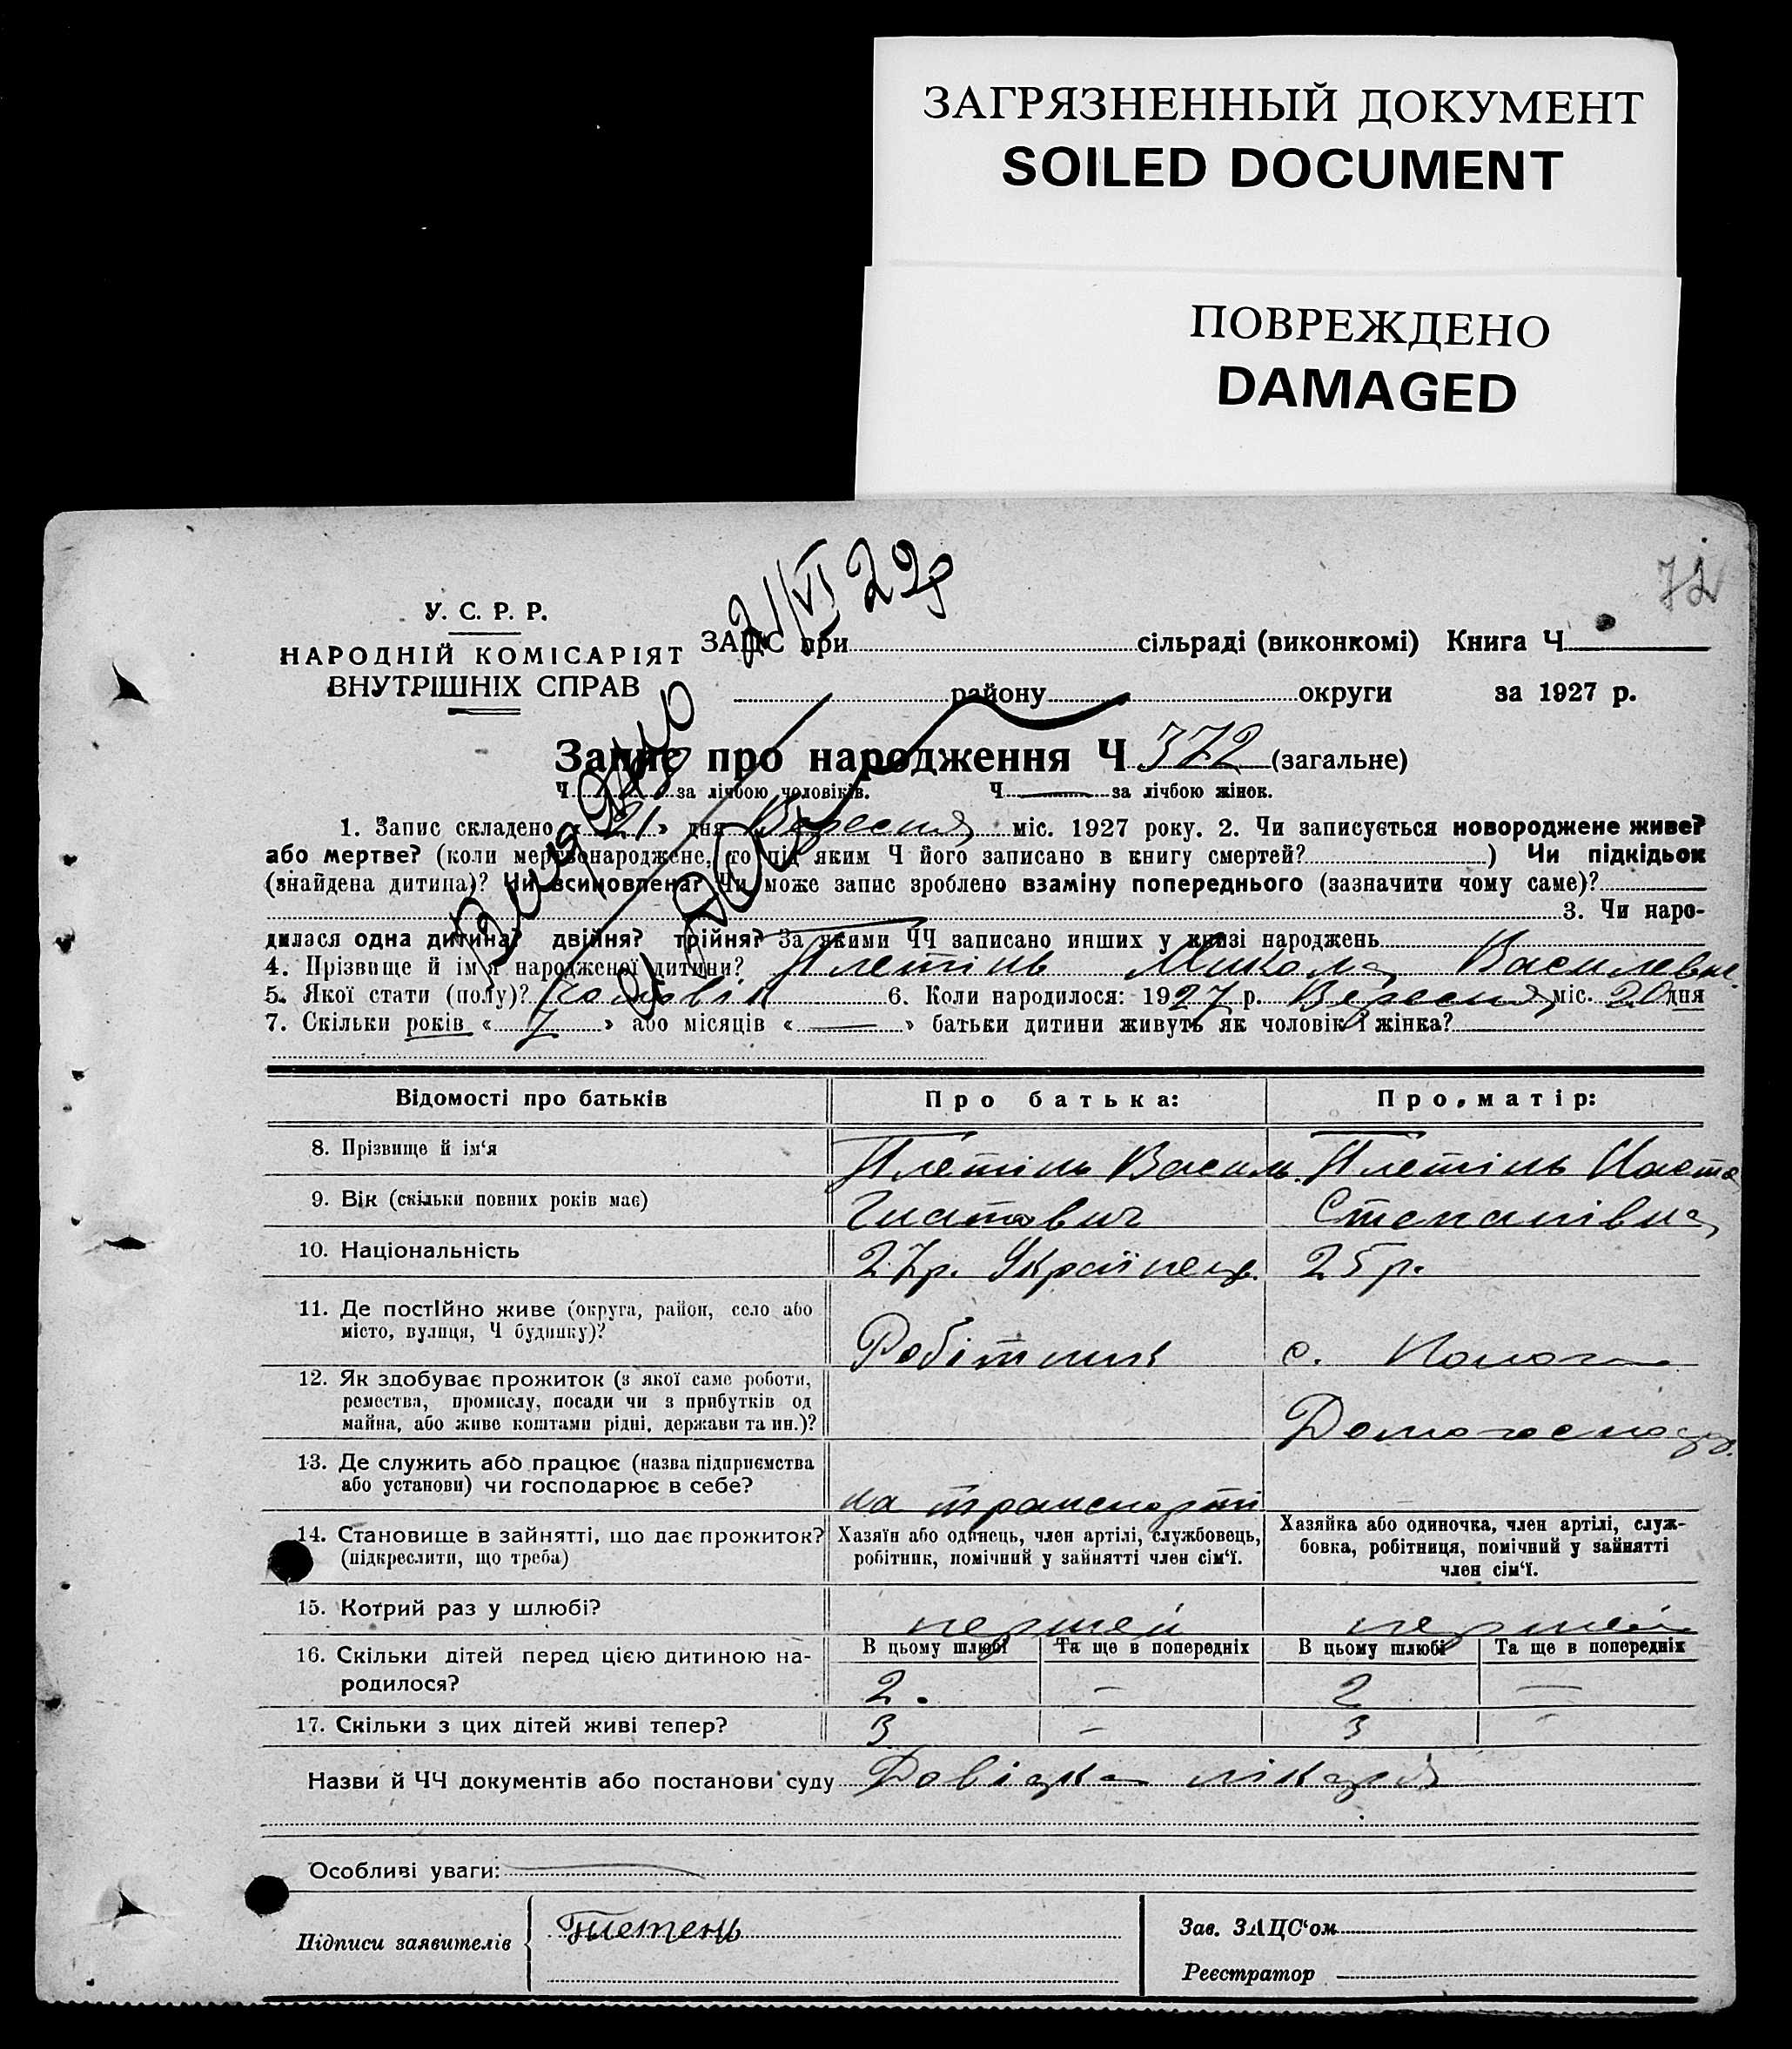 ЗАГРЯЗНЕННЫЙ ДОКУМЕНТ
SOILED DOCUMENT
ПОВРЕЖДЕНО
DAMAGED
72
21/VI 22р
У. С. Р. Р.
НАРОДНІЙ КОМІСАРІЯТ
ВНУТРІШНІХ СПРАВ
ЗАЦС при сільраді (виконкомі) Книга Ч
району округи за 1927 р.
Запис про народження Ч 372 (загальне)
Ч за лічбою чоловіків. Ч — за лічбою жінок.
Видано
1. Запис складено « 21 » дня Вересня міс. 1927 року. 2. Чи записується новороджене живе?
або мертве? (коли мертвонароджене, то під яким Ч його записано в книгу смертей? ) Чи підкідьок
(знайдена дитина)? Чи всиновлена? Чи може запис зроблено взаміну попереднього (зазначити чому саме)?
3. Чи наро-
дилася одна дитина? двійня? трійня? За якими ЧЧ записано инших у книзі народжень
4. Прізвище й ім'я народженої дитини? Плетінь Микола Василевич
5. Якої стати (полу)? Чоловік 6. Коли народилося: 1927 р. Вересня міс. 20 дня
7. Скільки років « 7 » або місяців « — » батьки дитини живуть як чоловік і жінка?
Відомості про батьків Про батька: Про матір:
8. Прізвище й ім'я Плетінь Василь Плетінь Наста
9. Вік (скільки повних років має) Гнатович Степанівна
10. Національність 27р. Українець. 25р.
11. Де постійно живе (округа, район, село або
місто, вулиця, Ч будинку)? Робітник с.
12. Як здобуває прожиток (з якої саме роботи,
ремества, промислу, посади чи з прибутків од
майна, або живе коштами рідні, держави та ин.)? Домогоспод.
13. Де служить або працює (назва підприємства
або установи) чи господарює в себе? на транспорті
14. Становище в зайнятті, що дає прожиток? (підкреслити, що треба)
Хазяїн або одинець, член артілі, службовець,
робітник, помічний у зайнятті член сім'ї.
Хазяйка або одиночка, член артілі, служ-
бовка, робітниця, помічний у зайнятті
член сім'ї.
15. Котрий раз у шлюбі? першей першей
16. Скільки дітей перед цією дитиною на-
родилося?
В цьому шлюбі Та ще в попередніх В цьому шлюбі Та ще в попередніх
2. — 2 —
17. Скільки з цих дітей живі тепер? 3 — 3 -
Назви й ЧЧ документів або постанови суду Довідка лікаря
Особливі уваги:
Підписи заявителів Плетень
Зав. ЗАЦС'ом
Реєстратор